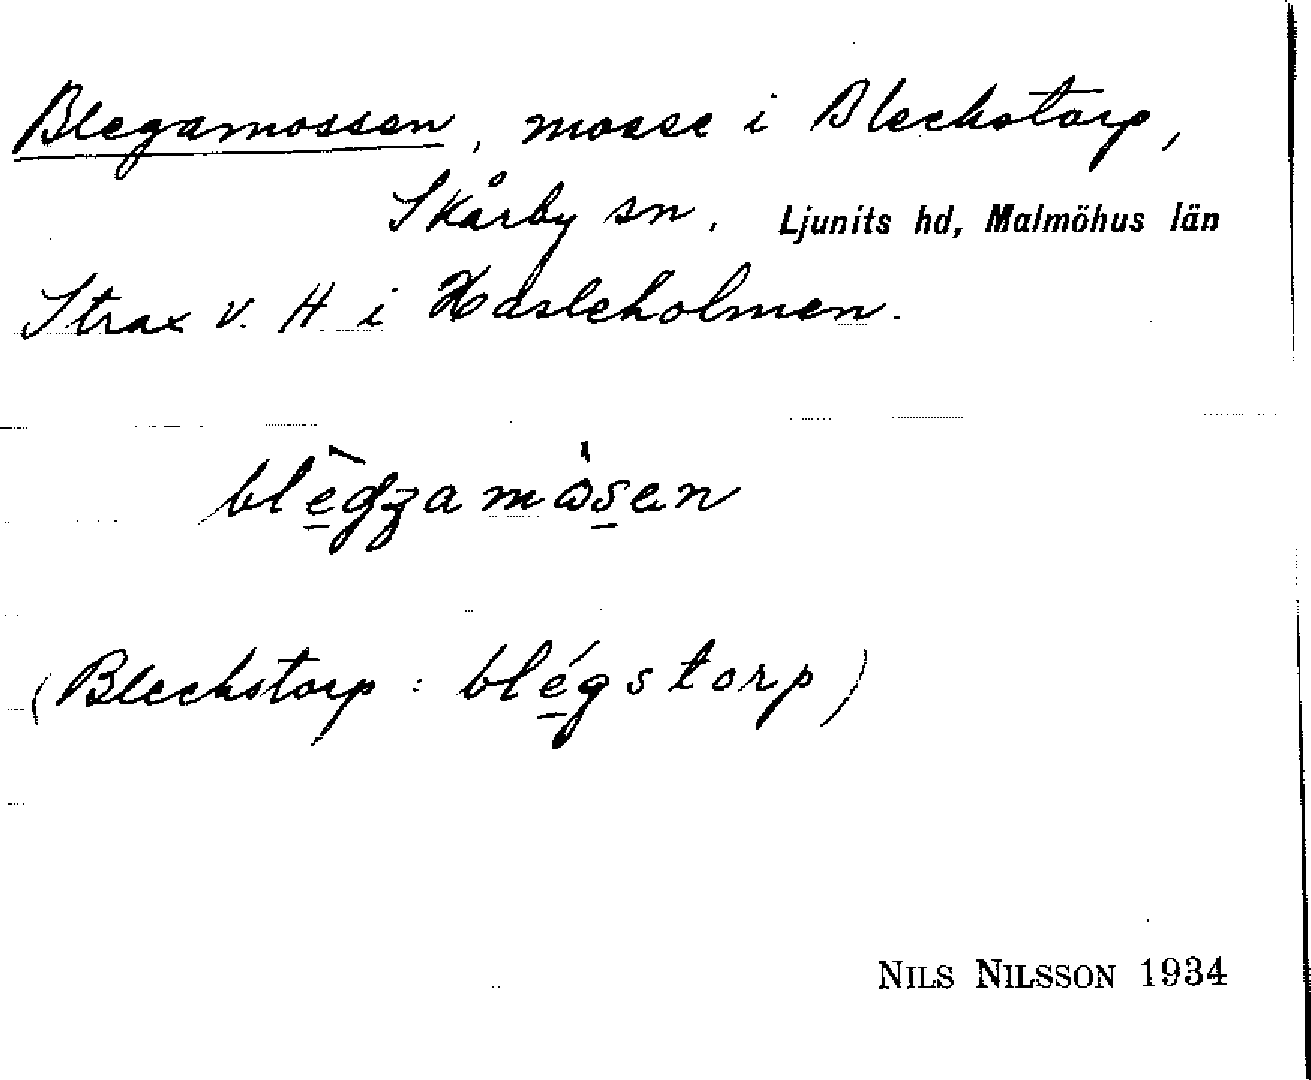 Blegamossen, mosse i Bleckstorp,
Skårby sn. Ljunits hd, Malmöhus län
Strax v. H i Hasleholmen.
blègʒamòsen
(Bleckstorp: blégstorp)
NILS NILSSON 1934